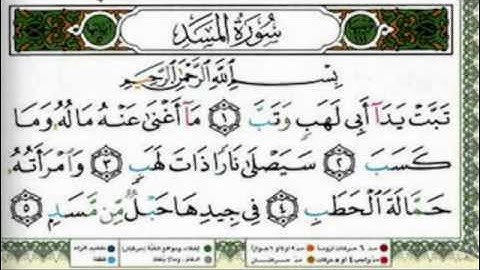 سُورَةُ المَسَدِ
بِسْمِ اللَّهِ الرَّحْمَٰنِ الرَّحِيمِ
تَبَّتْ يَدَآ أَبِى لَهَبٍ وَتَبَّ ١ مَآ أَغْنَىٰ عَنْهُ مَالُهُۥ وَمَا
كَسَبَ ٢ سَيَصْلَىٰ نَارًا ذَاتَ لَهَبٍ ٣ وَٱمْرَأَتُهُۥ
حَمَّالَةَ ٱلْحَطَبِ ٤ فِى جِيدِهَا حَبْلٌ مِّن مَّسَدٍۭ ٥